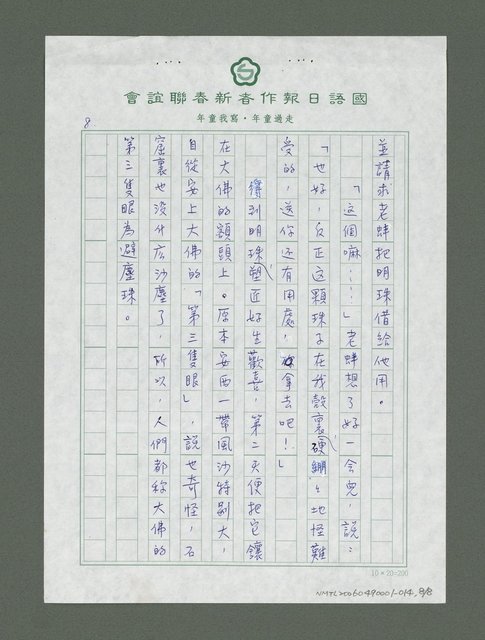 國語日報作者新春聯誼會
走過童年·寫我童年
8
並請求老蚌把明珠借給他用。
「這個嘛……」老蚌想了好一會兒,說:
「也好,反正這顆珠子在我殼裏硬繃繃地怪難
受的,送你还有用處,拿去吧!」
得到明珠,塑匠好生歡喜,第二天便把它鑲
在大佛的額頭上。原本安西一帶風沙特別大,
自從安上大佛的「第三隻眼」,說也奇怪,石
窟裏也沒什広沙塵了,所以,人們都称大佛的
第三隻眼為避塵珠。
10×20=200
NMTL20060490001-014, 8/8